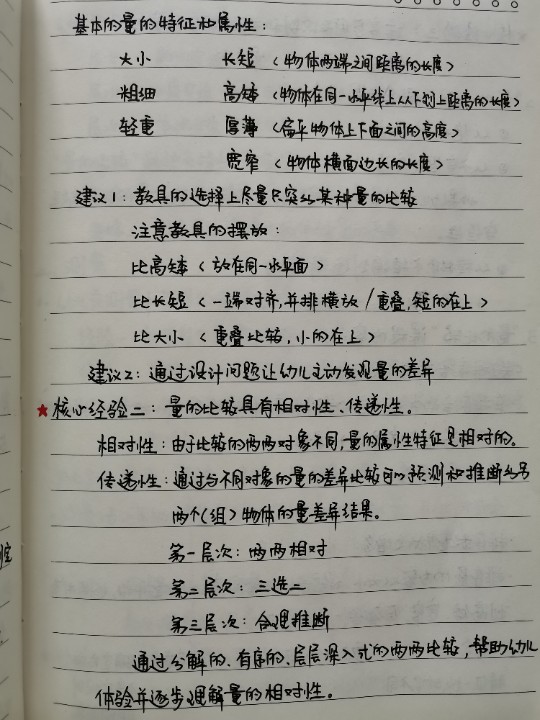 基本的量的特征和属性:
大小 长短〈物体两端之间距离的长度〉
粗细 高矮〈物体在同一水平线上从下到上距离的长度〉
轻重 厚薄〈扁平物体上下面之间的高度〉
宽窄〈物体横面边长的长度〉
建议1:教具的选择上尽量只突出某种量的比较
注意教具的摆放:
比高矮〈放在同一水平面〉
比长短〈一端对齐,并排横放/重叠,短的在上〉
比大小〈重叠比较,小的在上〉
建议2:通过设计问题让幼儿主动发现量的差异
★核心经验二:量的比较具有相对性、传递性。
相对性:由于比较的两两对象不同,量的属性特征是相对的。
传递性:通过与不同对象的量的差异比较可以预测和推断出另
两个(组)物体的量差异结果。
第一层次:两两相对
第二层次:三选二
第三层次:合理推断
通过分解的、有序的、层层深入式的两两比较,帮助幼儿
体验并逐步理解量的相对性。